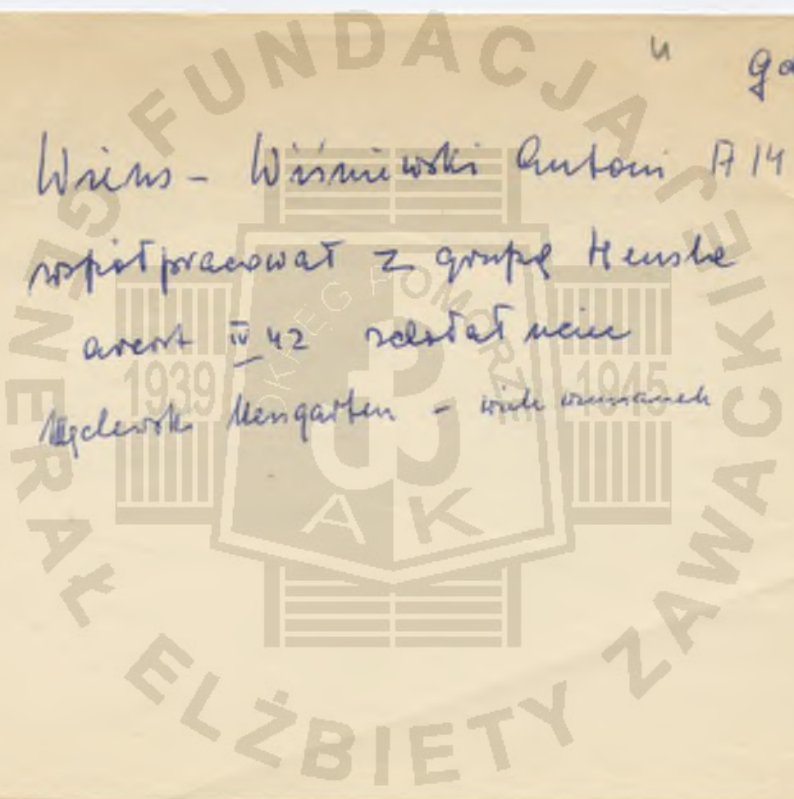 u gda
Wiens - Wiśniewski Antoni A 14
współpracował z grupą Henske
areszt IV 42 zdołał uciec
Neugarten - wiele wzmianek
FUNDACJA
GENERAŁ ELŻBIETY ZAWACKIEJ
OKRĘG POMORZE
1939 1945
AK